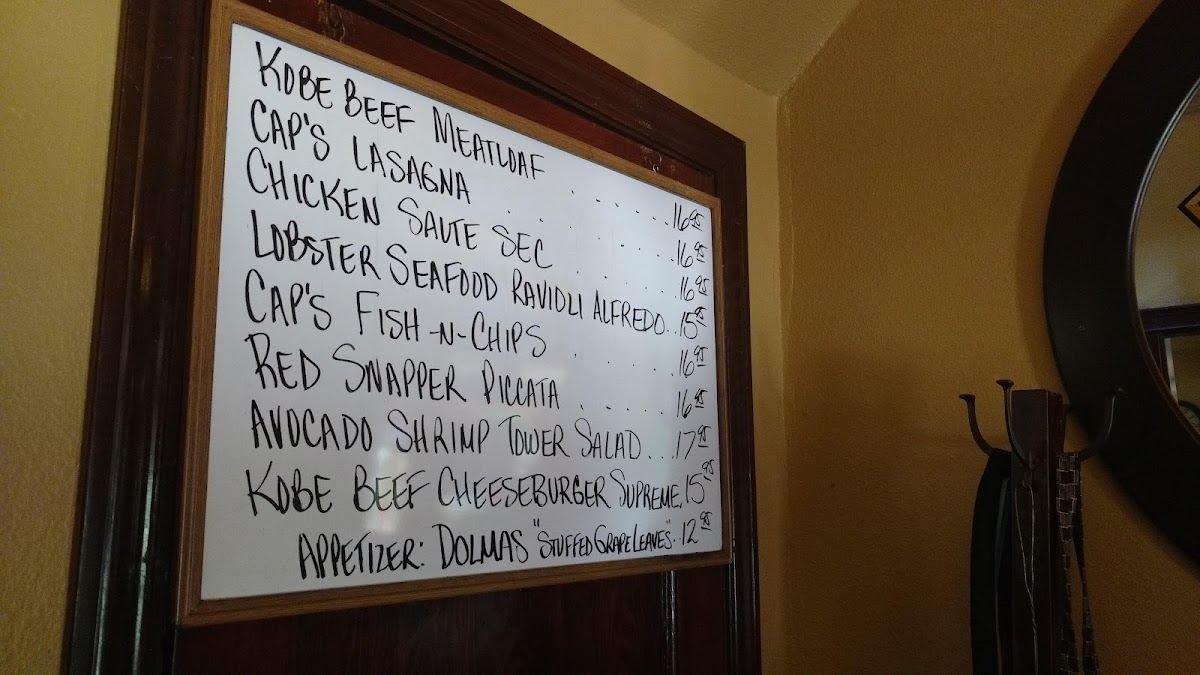 KOBE BEEF MEATLOAF . . . . . . 16 95
CAP'S LASAGNA . . . . . . . 16 95
CHICKEN SAUTE SEC . . . . . 16 95
LOBSTER SEAFOOD RAVIOLI ALFREDO..15 95
CAP'S FISH-N-CHIPS . . . . . 16 95
RED SNAPPER PICCATA . . . . . 16 95
AVOCADO SHRIMP TOWER SALAD...17 95
KOBE BEEF CHEESEBURGER SUPREME.15 95
APPETIZER: DOLMAS "STUFFED GRAPE LEAVES"..12 95